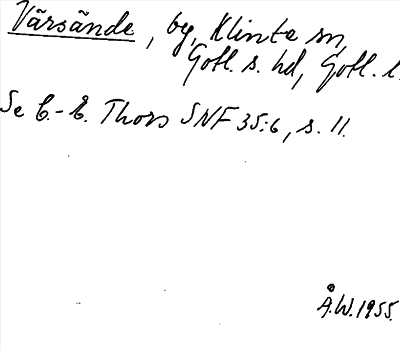 Värsände, by, Klinte sn,
Gotl. s. hd, Gotl. l.
Se C.-E. Thors SNF 35:6, s. 11.
Å.W. 1955.